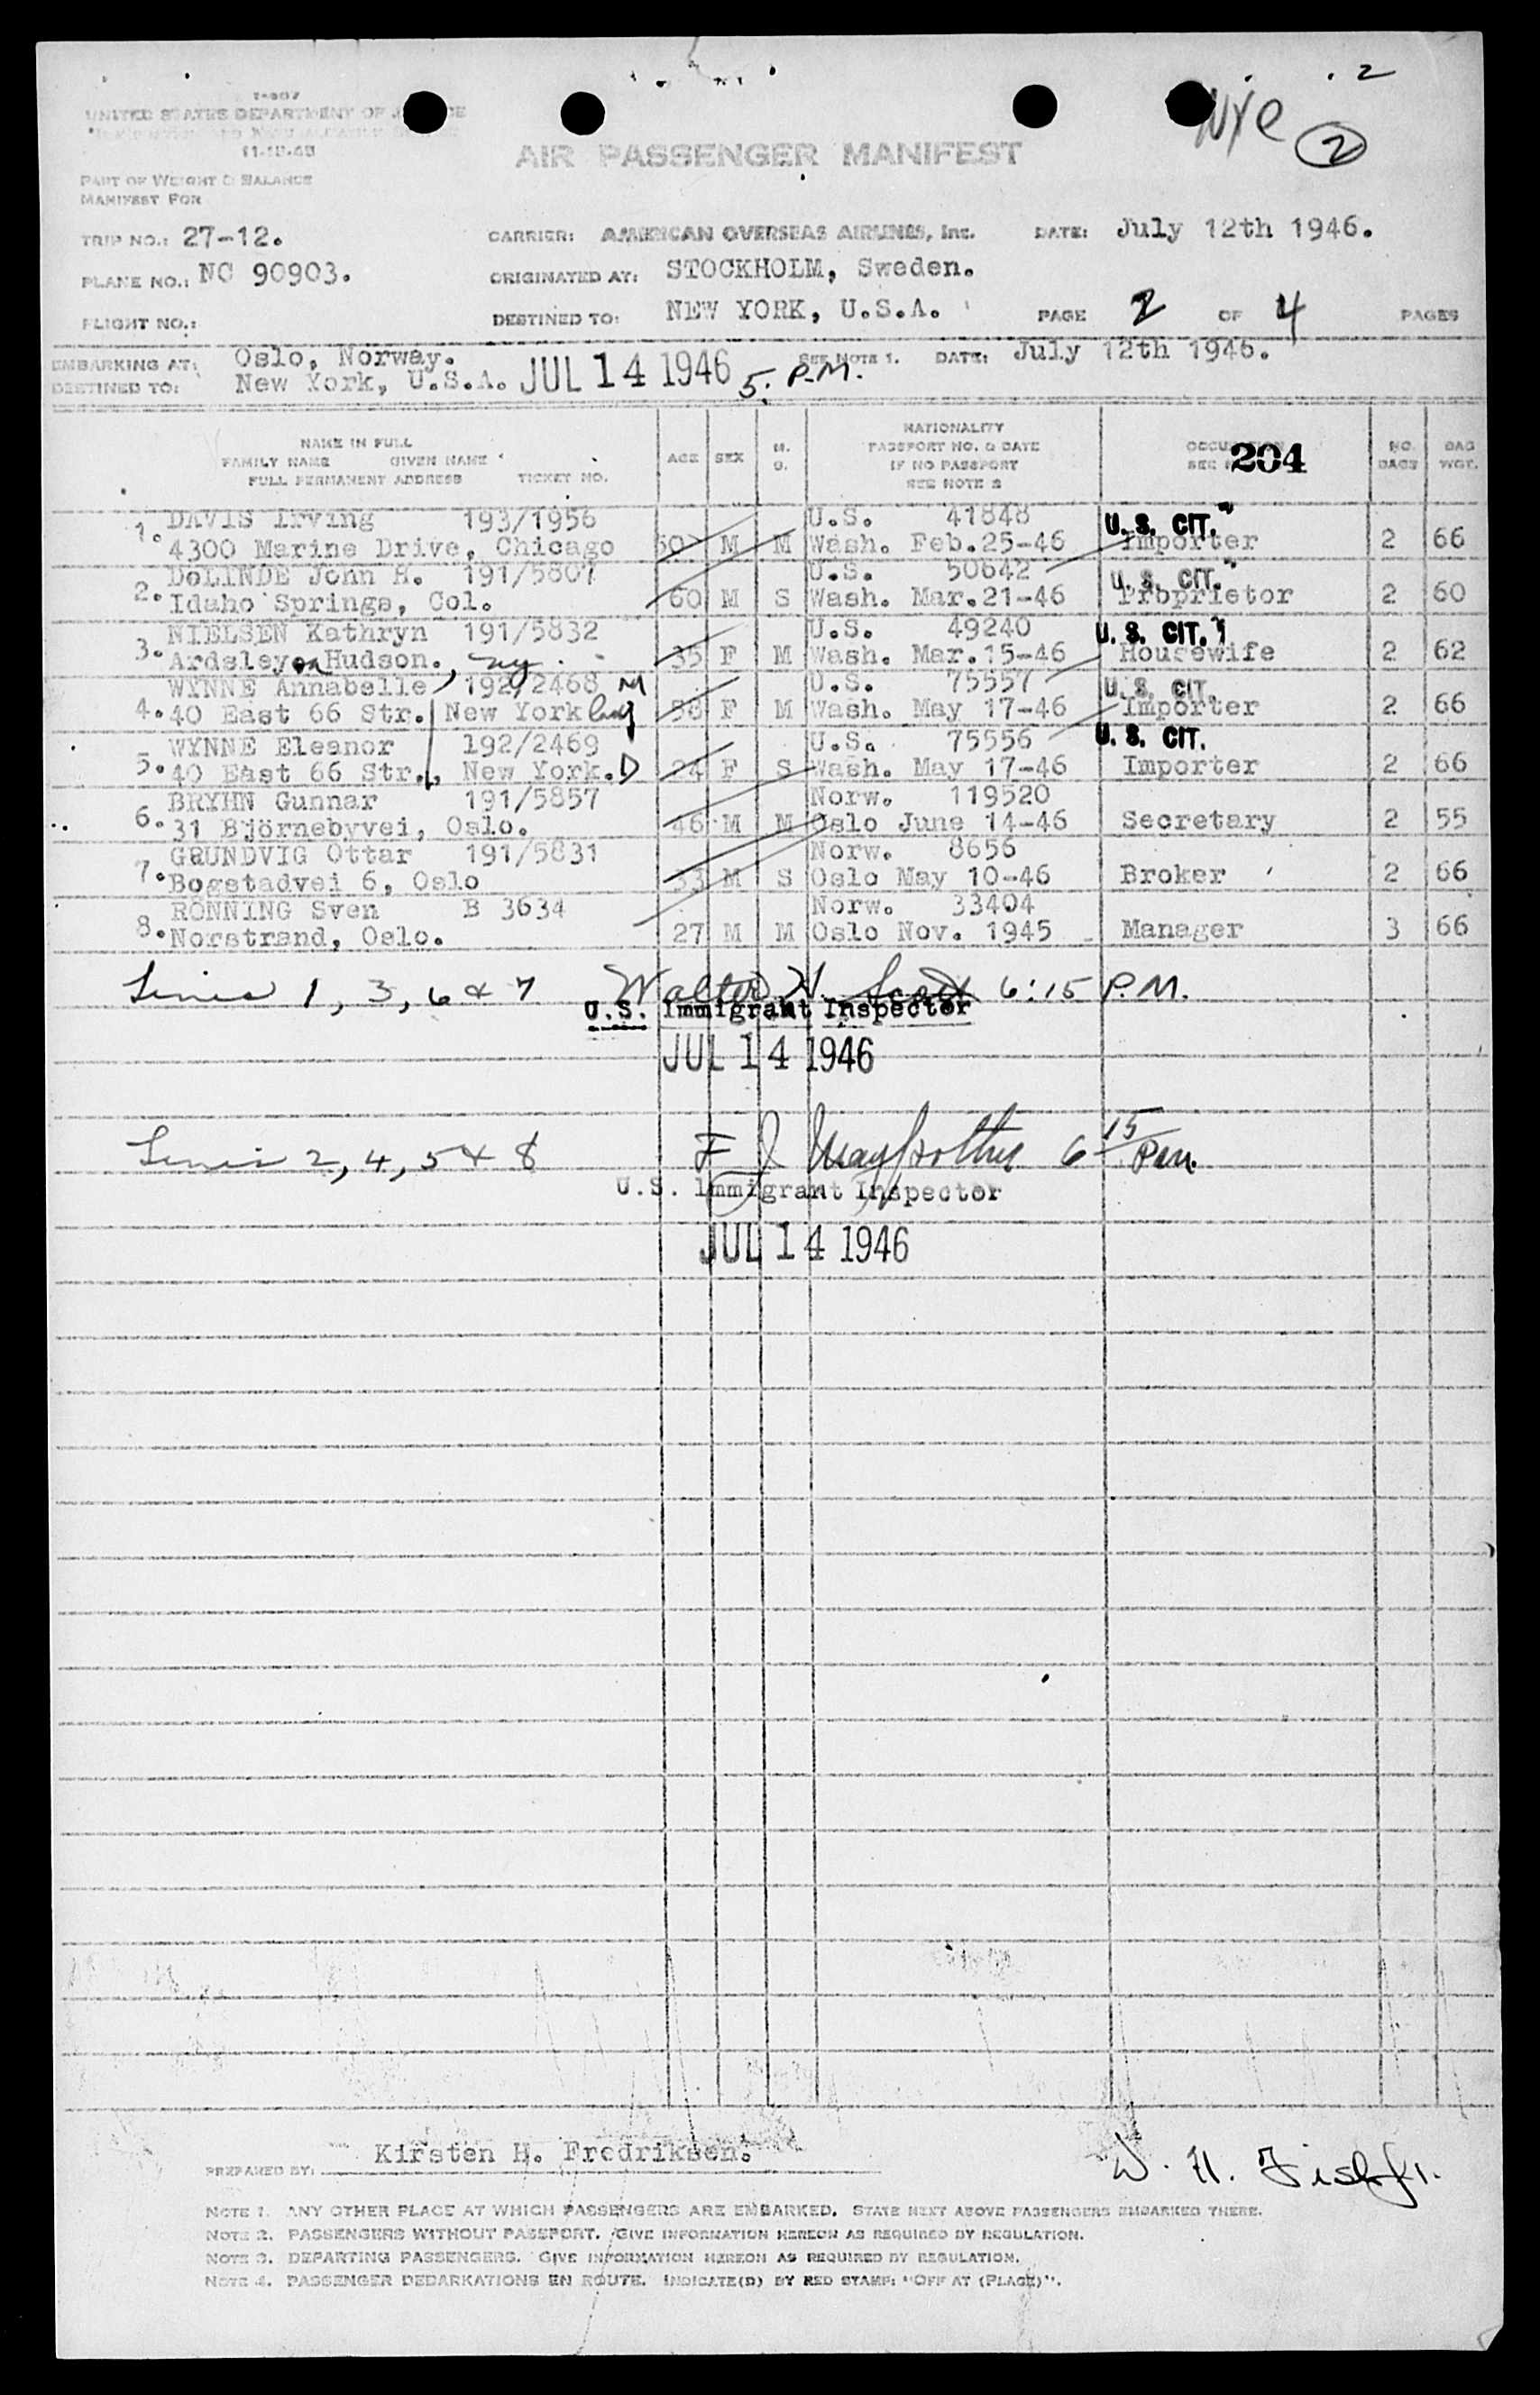 2
I-467
UNITED STATES DEPARTMENT OF
11-15-45
Nye 2
AIR PASSENGER MANIFEST
PART OF WEIGHT & BALANCE
MANIFEST FOR
TRIP NO.: 27-12. CARRIER: AMERICAN OVERSEAS AIRLINES, Inc. DATE: July 12th 1946.
PLANE NO.: NC 90903. ORIGINATED AT: STOCKHOLM, Sweden.
FLIGHT NO.: DESTINED TO: NEW YORK, U.S.A. PAGE 2 OF 4 PAGES
EMBARKING AT: Oslo, Norway. SEE NOTE 1. DATE: July 12th 1946.
DESTINED TO: New York, U.S.A. JUL 14 1946 5. P.M.
NAME IN FULL
FAMILY NAME GIVEN NAME
FULL PERMANENT ADDRESS TICKET NO.
AGE SEX M. S.
NATIONALITY
PASSPORT NO. & DATE
IF NO PASSPORT
SEE NOTE 2
204
NO. BAGS BAG WGT.
DAVIS Irving 193/1956 U.S. 41848 U. S. CIT.
1. 4300 Marine Drive, Chicago M M Wash. Feb.25-46 Importer 2 66
DoLINDE John H. 191/5807 U.S. 50642 U. S. CIT.
2. Idaho Springs, Col. 60 M S Wash. Mar.21-46 Proprietor 2 60
NIELSEN Kathryn 191/5832 U.S. 49240 U. S. CIT.
3. Ardsley on Hudson., ny. 35 F M Wash. Mar.15-46 Housewife 2 62
WYNNE Annabelle 192/2468 M U.S. 75557 U. S. CIT.
4. 40 East 66 Str. New York F M Wash. May 17-46 Importer 2 66
WYNNE Eleanor 192/2469 U.S. 75556 U. S. CIT.
5. 40 East 66 Str., New York. D 24 F S Wash. May 17-46 Importer 2 66
BRYHN Gunnar 191/5857 Norw. 119520
6. 31 Björnebyvei, Oslo. 46 M M Oslo June 14-46 Secretary 2 55
GRUNDVIG Ottar 191/5831 Norw. 8656
7. Bogstadvei 6, Oslo 33 M S Oslo May 10-46 Broker 2 66
RÖNNING Sven B 3634 Norw. 33404
8. Norstrand, Oslo. 27 M M Oslo Nov. 1945 Manager 3 66
Lines 1, 3, 6 & 7 Walter H. 6:15 P.M.
U.S. Immigrant Inspector
JUL 14 1946
Lines 2, 4, 5 & 8 F J 6 15 P.m.
U.S. Immigrant Inspector
JUL 14 1946
PREPARED BY: Kirsten H. Fredriksen.
W. H.
NOTE 1. ANY OTHER PLACE AT WHICH PASSENGERS ARE EMBARKED. STATE NEXT ABOVE PASSENGERS EMBARKED THERE.
NOTE 2. PASSENGERS WITHOUT PASSPORT. GIVE INFORMATION HEREON AS REQUIRED BY REGULATION.
NOTE 3. DEPARTING PASSENGERS. GIVE INFORMATION HEREON AS REQUIRED BY REGULATION.
NOTE 4. PASSENGER DEBARKATIONS EN ROUTE. INDICATE(D) BY RED STAMP: "OFF AT (PLACE)".